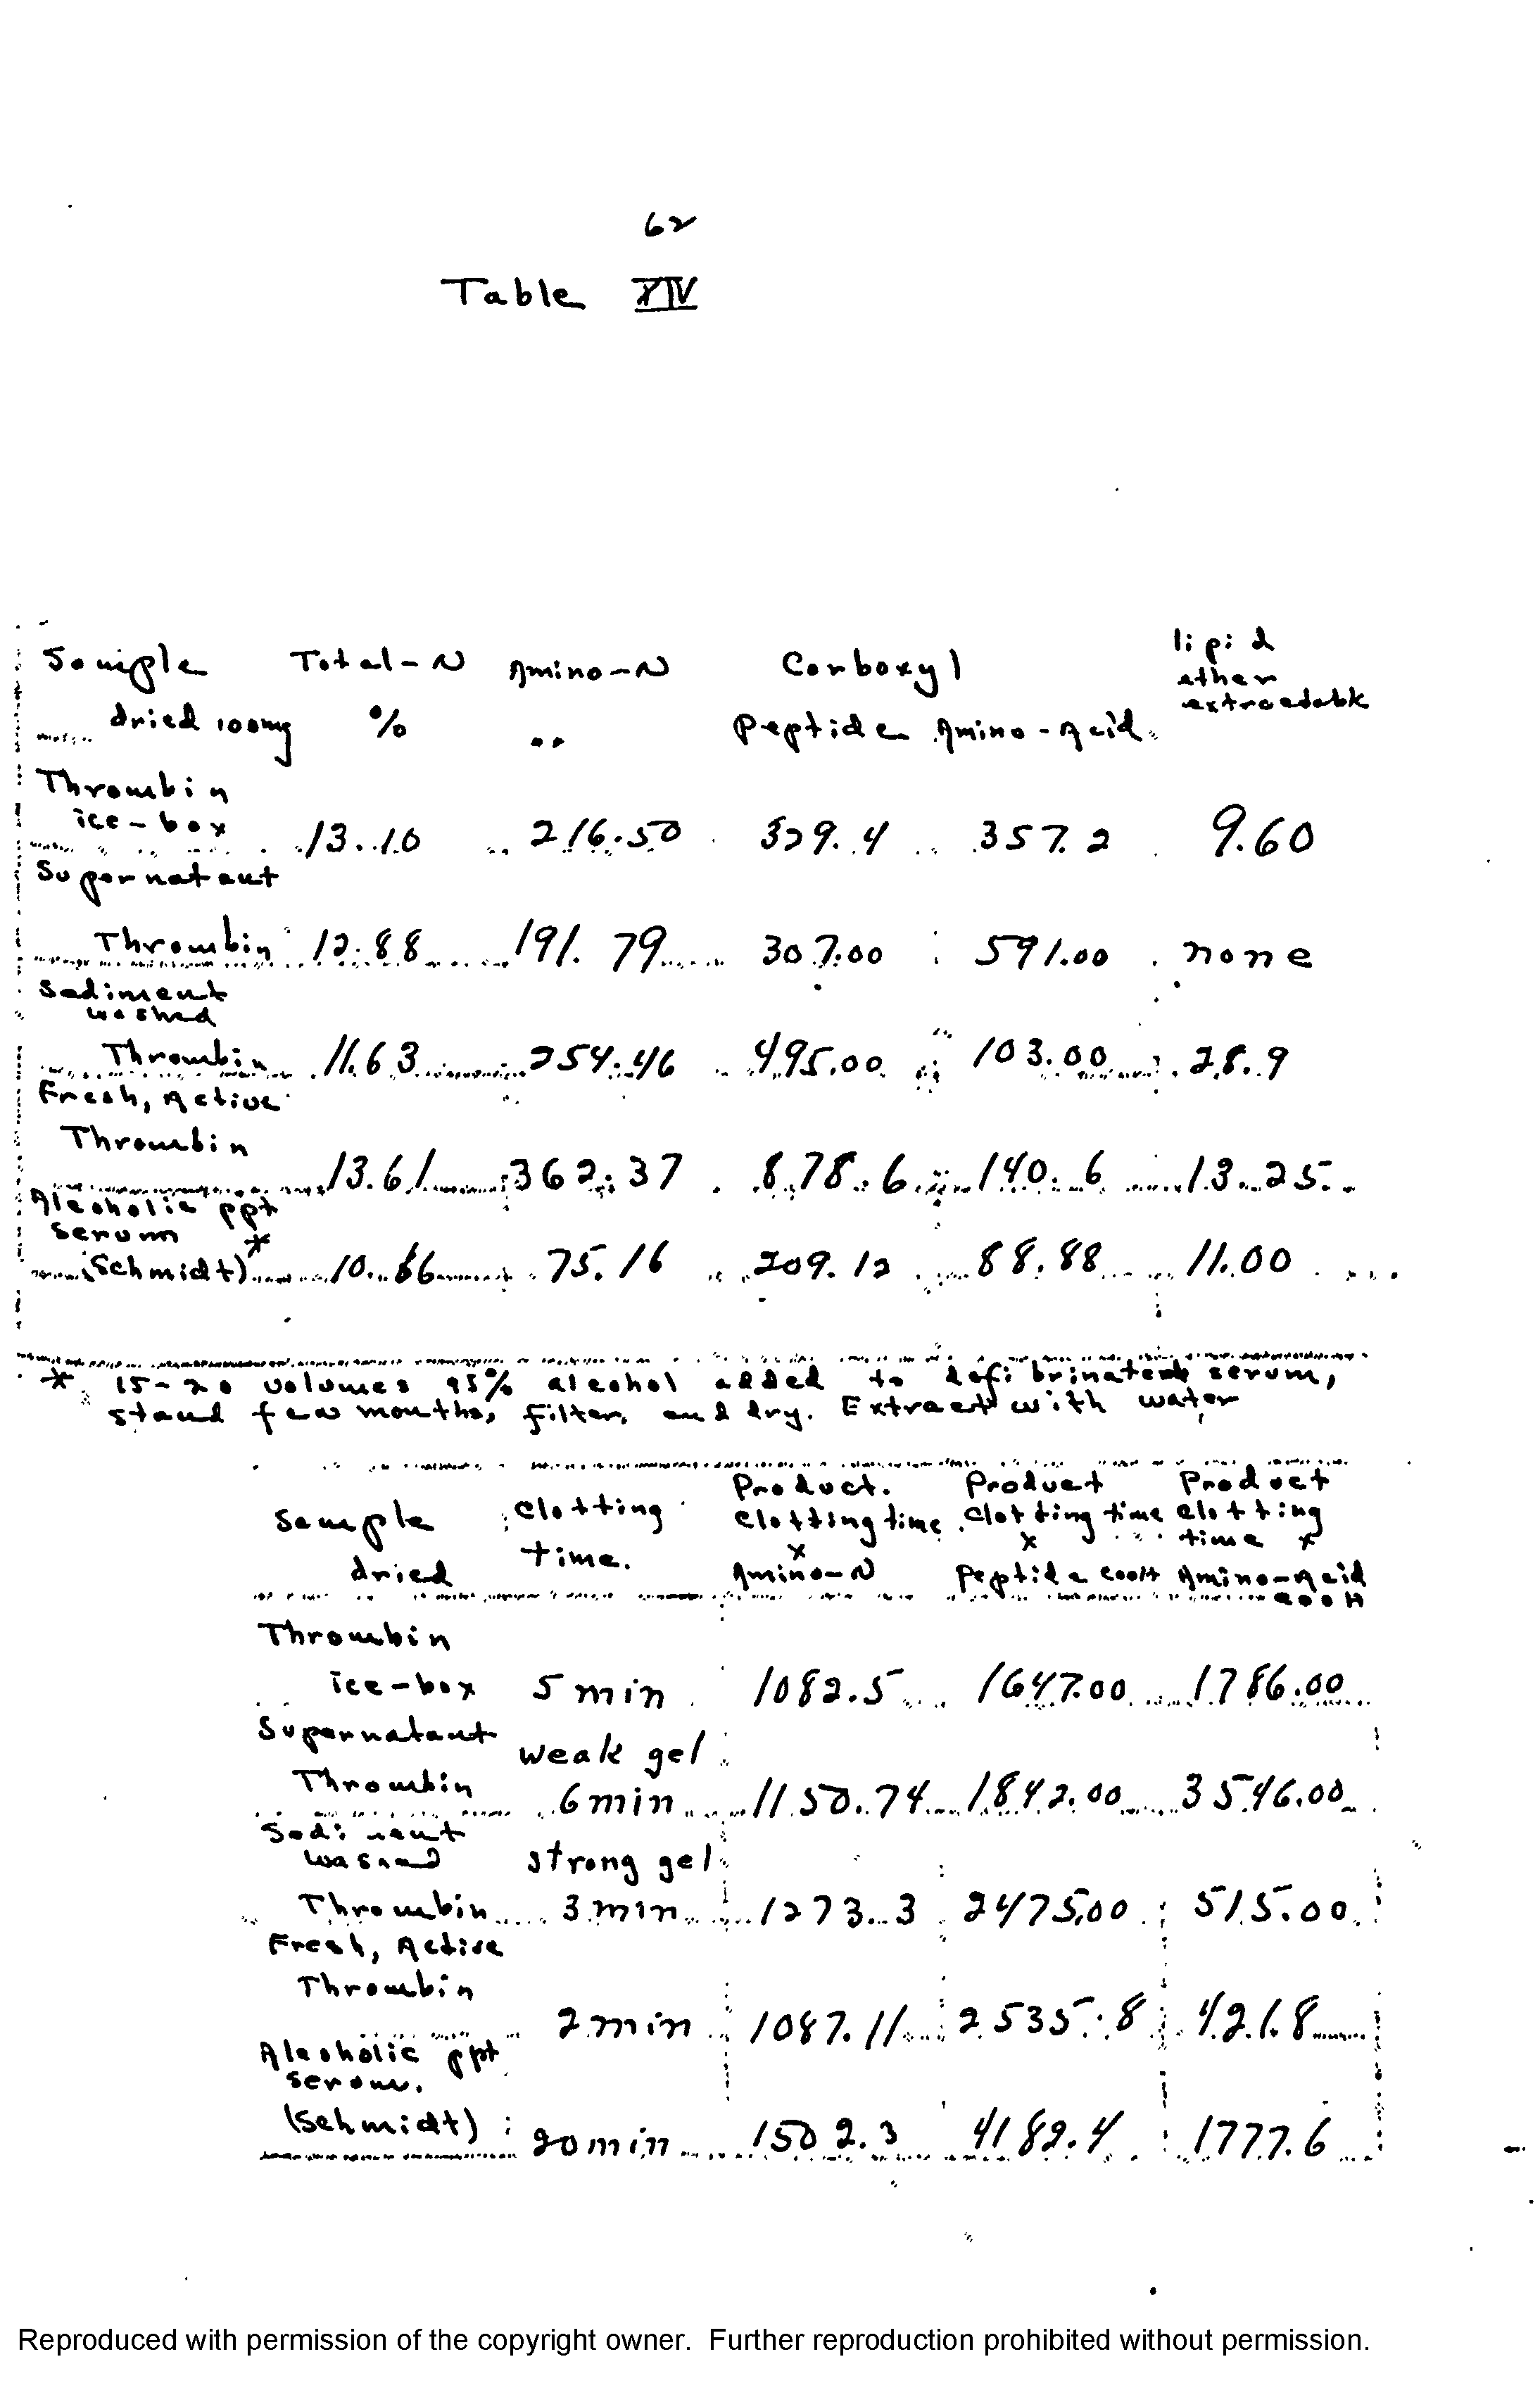 62
Table XIV
Sample Total-N Amino-N Carboxyl lipid ether extractable
dried 100mg % " Peptide Amino-Acid
Thrombin
ice-box 13.10 216.50 329.4 357.2 9.60
Supernatant
Thrombin 12.88 191.79 307.00 591.00 none
Sediment
washed
Thrombin 11.63 254.46 495.00 103.00 28.9
Fresh, Active
Thrombin
13.61 362.37 878.6 140.6 13.25
Alcoholic ppt
serum
(Schmidt)* 10.66 75.16 209.12 88.88 11.00
* 15-20 volumes 95% alcohol added to defibrinated serum,
stand few months, filter, and dry. Extract with water
Product. Product Product
Sample clotting clotting time clotting time clotting
time. x x time x
dried Amino-N Peptide COOH Amino-Acid
COOH
Thrombin
ice-box 5 min 1082.5 1647.00 1786.00
Supernatant weak gel
Thrombin 6 min 1150.74 1842.00 3546.00
Sediment
washed strong gel
Thrombin 3 min 1273.3 2475.00 515.00
Fresh, Active
Thrombin
2 min 1087.11 2535.8 421.8
Alcoholic ppt
serum.
(Schmidt) 20 min 1502.3 4182.4 1777.6
Reproduced with permission of the copyright owner. Further reproduction prohibited without permission.